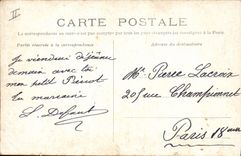 II
CARTE POSTALE
La correspondance au recto n'est pas acceptée par tous les pays étrangers
Partie réservée à la correspondance
Adresse du destinataire
Je viendrai déjeuner
demain avec toi
mon petit Pierrot
ta marraine
Mr Pierre Lacroix
205 rue Championnet
Paris 18eme